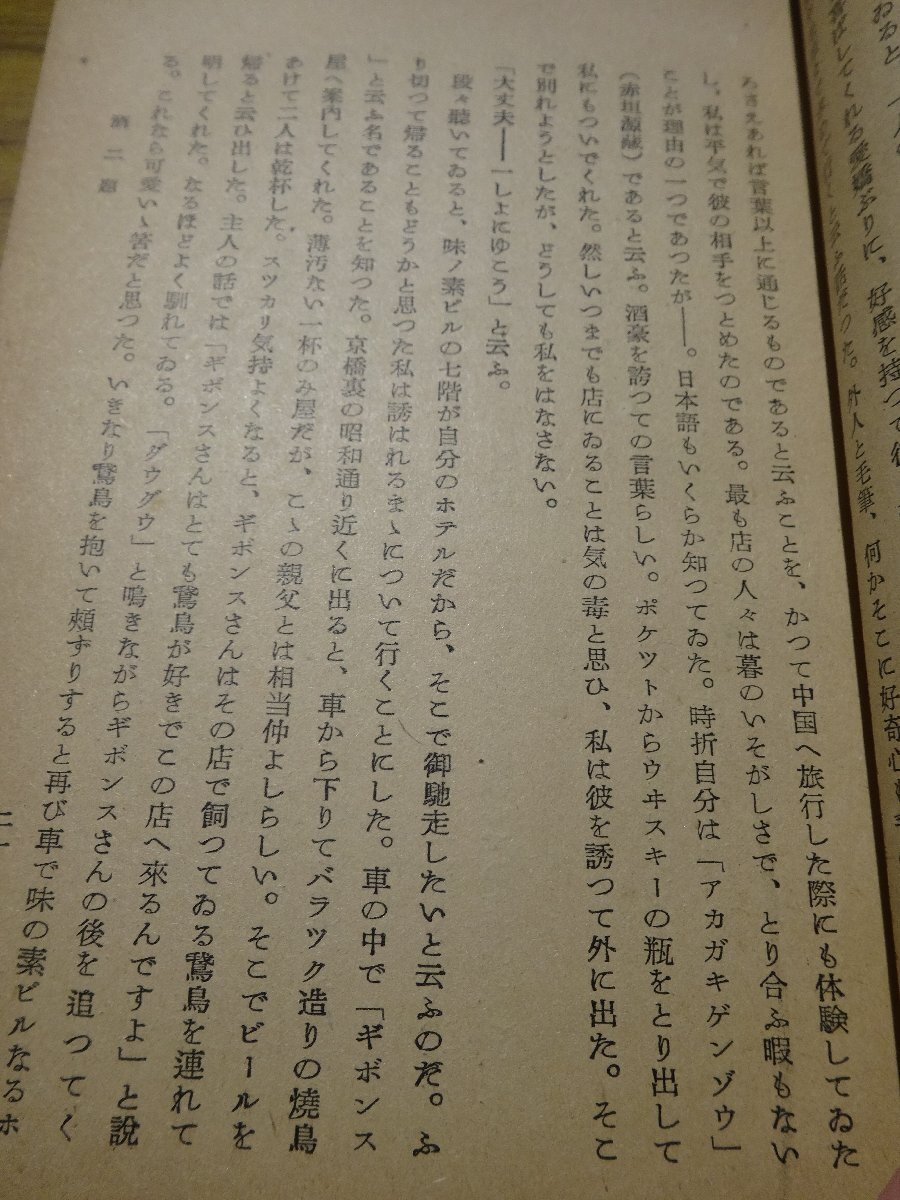 ゐると
してくれる愛嬌ぶりに、好感を持つて
外人と毛筆、何かそこに好奇心
ろさえあれば言葉以上に通じるものであると云ふことを、かつて中国へ旅行した際にも体験してゐた
し、私は平気で彼の相手をつとめたのである。最も店の人々は暮のいそがしさで、とり合ふ暇もない
ことが理由の一つであつたが――。日本語もいくらか知つてゐた。時折自分は「アカガキゲンゾウ」
（赤垣源蔵）であると云ふ。酒豪を誇つての言葉らしい。ポケツトからウヰスキーの瓶をとり出して
私にもついでくれた。然しいつまでも店にゐることは気の毒と思ひ、私は彼を誘つて外に出た。そこ
で別れようとしたが、どうしても私をはなさない。
「大丈夫――一しよにゆこう」と云ふ。
段々聴いてゐると、味ノ素ビルの七階が自分のホテルだから、そこで御馳走したいと云ふのだ。ふ
り切つて帰ることもどうかと思つた私は誘はれるまゝについて行くことにした。車の中で「ギボンス
」と云ふ名であることを知つた。京橋裏の昭和通り近くに出ると、車から下りてバラツク造りの焼鳥
屋へ案内してくれた。薄汚ない一杯のみ屋だが、こゝの親父とは相当仲よしらしい。そこでビールを
あけて二人は乾杯した。スツカリ気持よくなると、ギボンスさんはその店で飼つてゐる鵞鳥を連れて
帰ると云ひ出した。主人の話では「ギボンスさんはとても鵞鳥が好きでこの店へ來るんですよ」と説
明してくれた。なるほどよく馴れてゐる。「グウグウ」と鳴きながらギボンスさんの後を追つてく
る。これなら可愛いゝ筈だと思つた。いきなり鵞鳥を抱いて頰ずりすると再び車で味の素ビルなるホ
酒二題
二一